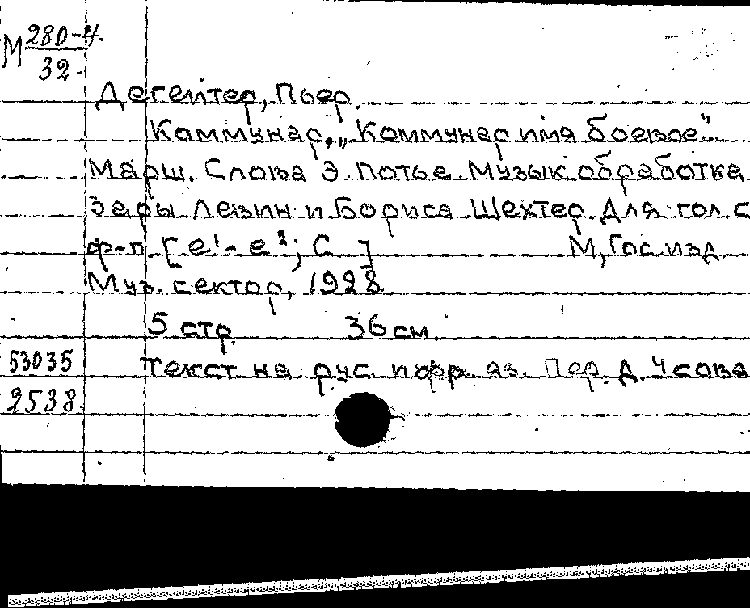 М 280-4
32
Дегейтер, Пьер.
Коммунар, „Коммунар имя боевое".
Марш. Слова Э. Потье. Музык. обработка
Зары Левин и Бориса Шехтер. Для гол. с
ф-п. [e¹-e²; C ] М, Гос. изд.
Муз. сектор, 1928
5 стр. 36 см.
53035 Текст на рус. и фр. яз. Пер. Д. Усова
2538